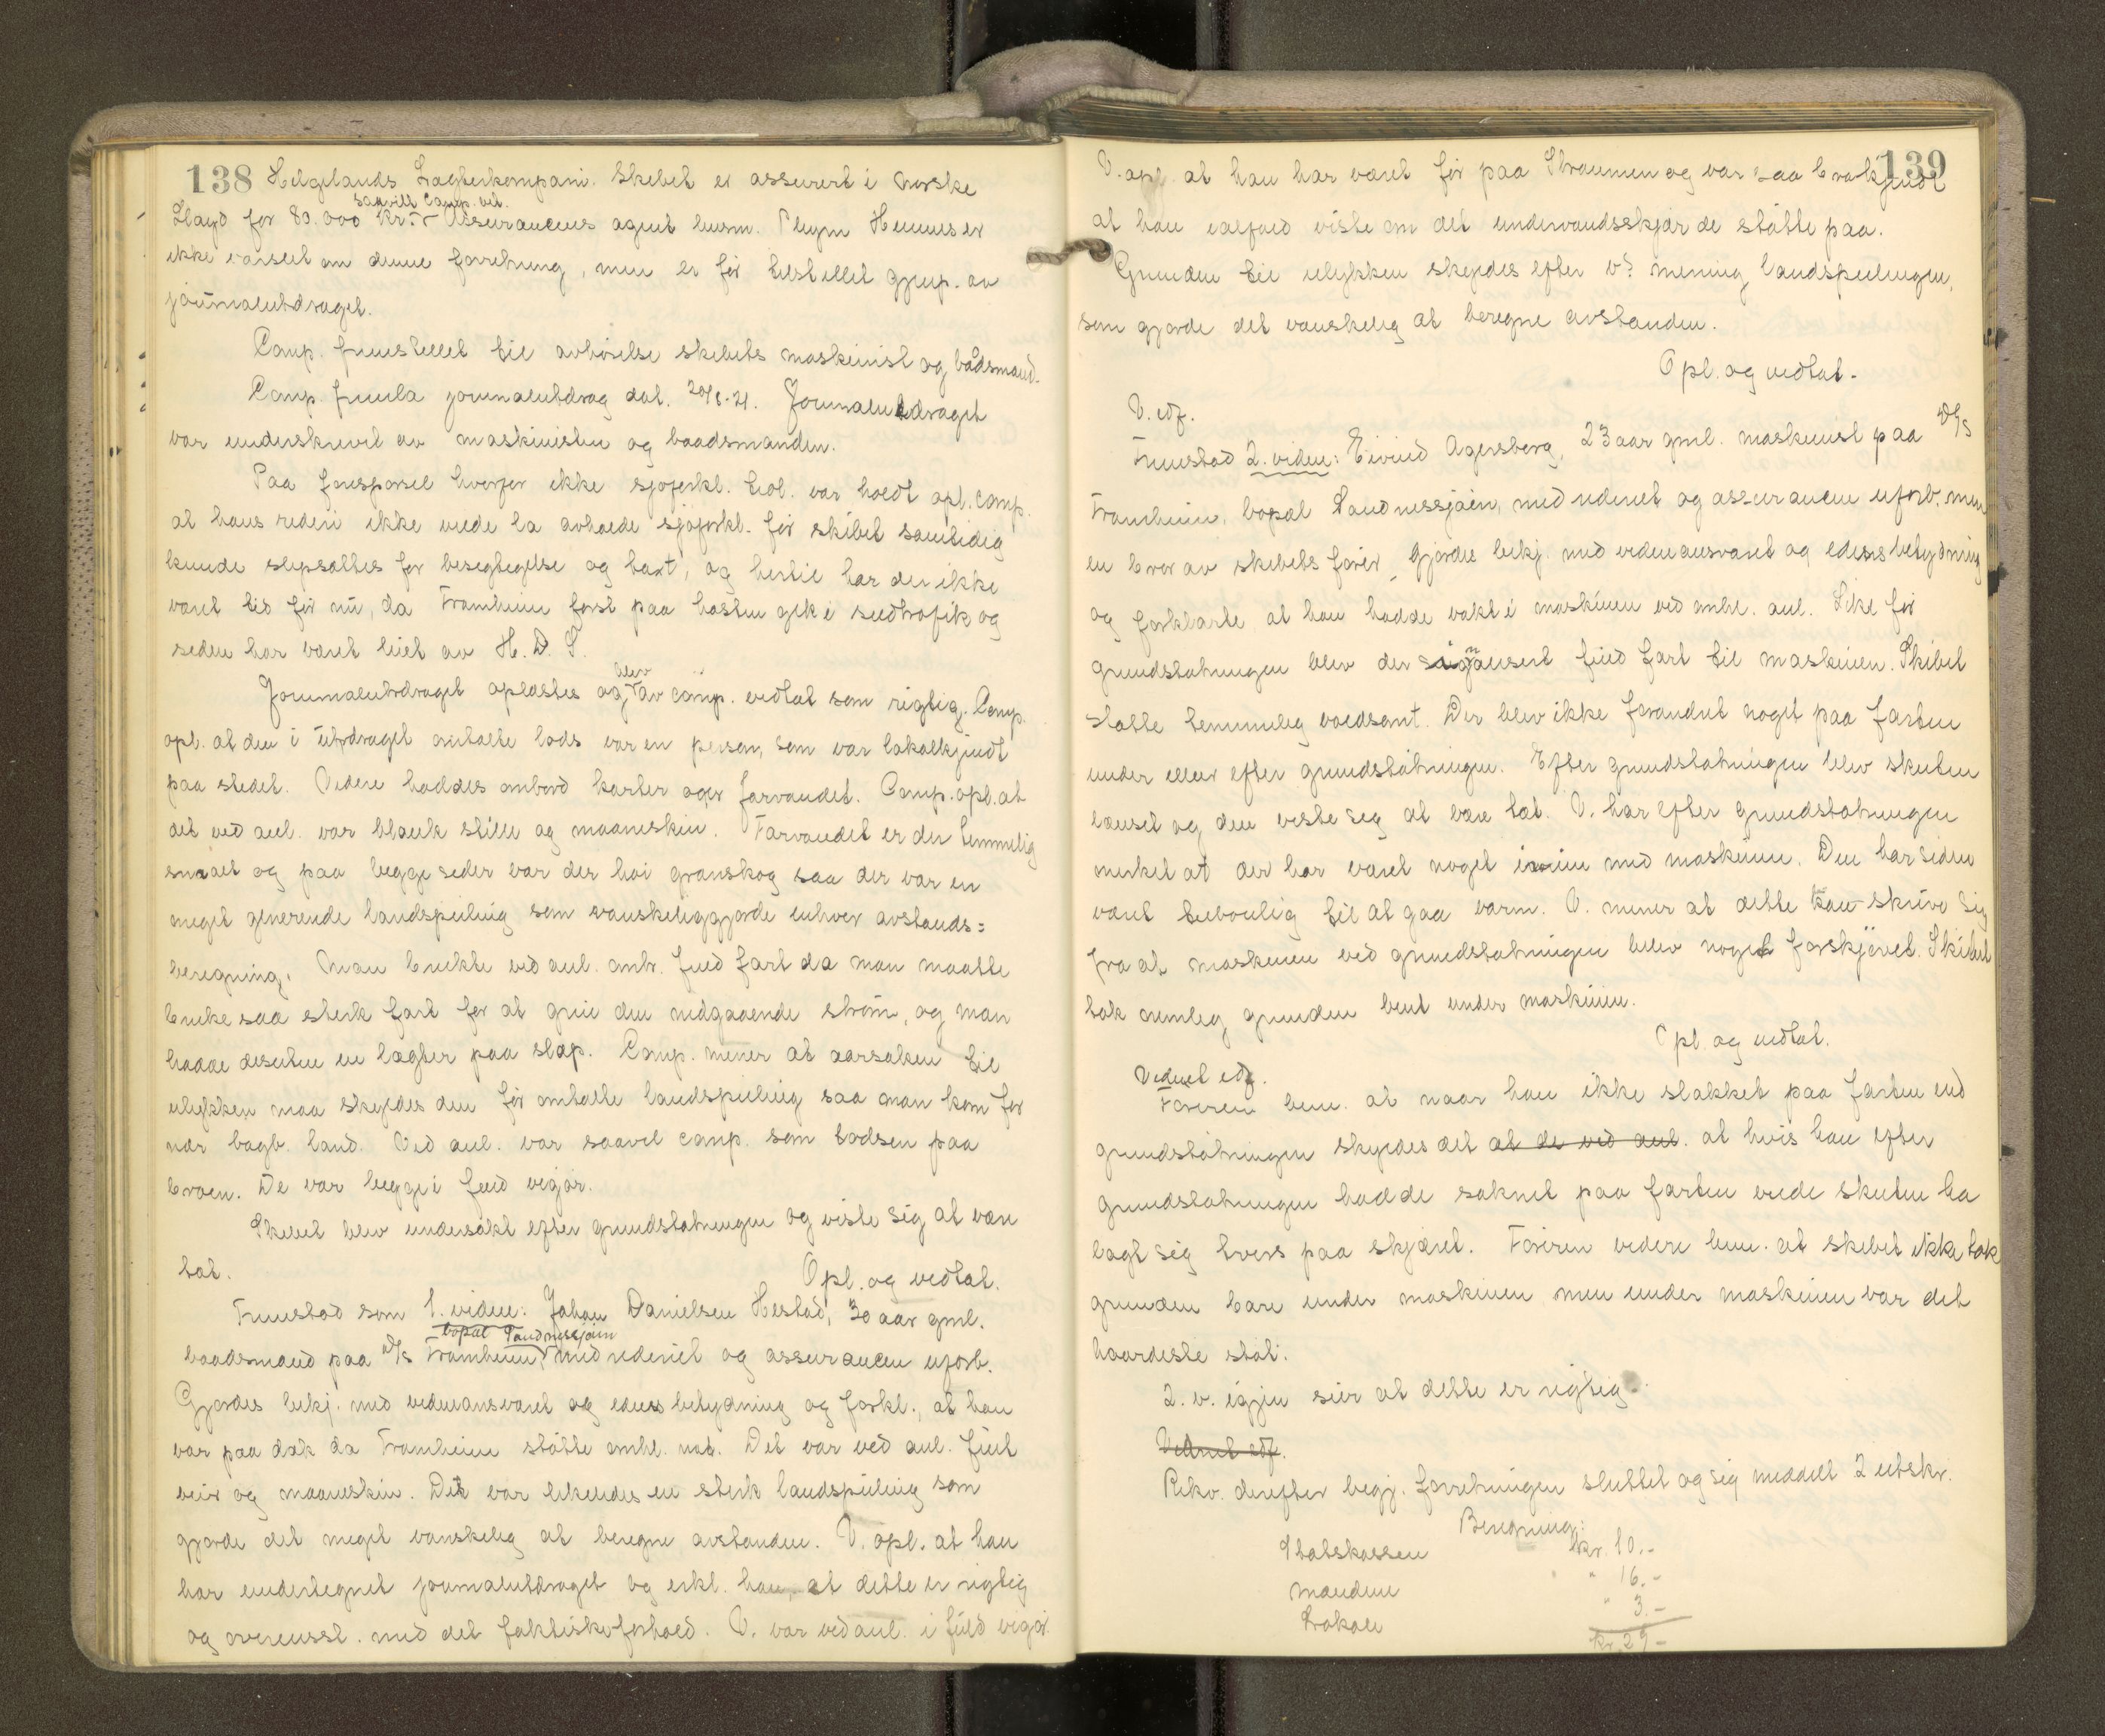 138
Helgelands Lagterkompani. Skibet er assurert i norske
Lloyd for 80.000 kr. Assuranceus agent herm.
saavill Comp. vet.
ikke varslet om denne forretning, men er før tilstillet gjenp. av
journalutdraget.
Comp. fremstillet til avhørelse skibets maskinist og bådsmand.
Comp. fremla journalutdrag dat. 20/8-21. Journalutdraget
var underskrevet av maskinisten og baadsmanden.
Paa forespørsel hvorfor ikke sjøforkl. tid. var holdt opl. comp.
at hans rederi ikke vilde la avholde sjøforkl. før skibet samtidig
kunde slipsættes for besigtigelse og taxt, og hertil har der ikke
været tid før nu, da Framheim først paa høsten gik i sildtrafik og
siden har været leiet av H. D. S.
Journalutdraget oplæstes og blev av comp. vedtat som rigtig. Comp.
opl. at den i utdraget omtalte lods var en person, som var lokalkjendt
paa stedet. Videre haddes ombord karter over farvandet. Comp. opl. at
det ved anl. var blank stille og maaneskin. Farvandet er der temmelig
smalt og paa begge sider var der høi granskog saa der var en
meget generende landspeiling som vanskeliggjorde enhver avstands=
beregning. Man brukte ved anl. omtr. fuld fart da man maatte
bruke saa sterk fart for at greie den nedgaaende strøm, og man
hadde desuten en lægter paa slæp. Comp. mener at aarsaken til
ulykken maa skyldes den før omtalte landspeiling saa man kom for
nær bagb. land. Ved anl. var saavel comp. som lodsen paa
broen. De var begge i fuld vigør.
Skibet blev undersøkt efter grundstøtningen og viste sig at være
tæt.
Opl. og vedtat.
Fremstod som 1. vidne: Johan Danielsen Hestad, 30 aar gml.
bopæl Sandnessjøen
baadsmand paa D/S Framheim, med rederiet og assurancen uforb.
Gjordes bekj. med vidneansvaret og edens betydning og forkl., at han
var paa dæk da Framheim støtte omhl. nat. Det var ved anl. fint
veir og maaneskin. Det var likeledes en sterk landspeiling som
gjorde det meget vanskelig at beregne avstanden. V. opl. at han
har undertegnet journalutdraget og erkl. han, at dette er rigtig
og overensst. med det faktiske forhold. V. var ved anl. i fuld vigør.
139
V. opl. at han har været før paa Straumen og var saa bra kjendt
at han ialfald viste om det undervandsskjær de støtte paa.
Grunden til ulykken skyldes efter v's mening landspeilingen,
som gjorde det vanskelig at beregne avstanden.
Opl. og vedtat.
V. edf.
Fremstod 2. vidne: Eivind Agersborg, 23 aar gml. maskinist paa D/S
Framheim, bopæl Sandnessjøen, med rederiet og assurancen uforb. men
en bror av skibets fører, gjordes bekj. med vidneansvaret og edens betydning
og forklarte, at han hadde vakt i maskinen ved omhl. anl. Like før
grundstøtningen blev der avansert fuld fart til maskinen. Skibet
støtte temmelig voldsomt. Der blev ikke forandret noget paa farten
under eller efter grundstøtningen. Efter grundstøtningen blev skuten
lænset og den viste sig at være tæt. V. har efter grundstøtningen
merket at der har været noget iveien med maskinen. Den har siden
været tilbøielig til at gaa varm. V. mener at dette kan skrive sig
fra at maskinen ved grundstøtningen blev noget forskjøvet. Skibet
tok nemlig grunden bent under maskinen.
Opl. og vedtat.
Vidnet edf.
Føreren bem. at naar han ikke slakket paa farten ved
grundstøtningen skyldes det at de ved anl. at hvis han efter
grundstøtningen hadde saknet paa farten vilde skuten ha
lagt sig tvers paa skjæret. Føreren videre bem. at skibet ikke tok
grunden bare under maskinen men under maskinen var det
haardeste støt.
2. v. igjen sier at dette er rigtig.
Vidnet edf.
Rekv. derefter begj. forretningen sluttet og sig meddelt 2 utskr.
Beregning:
Statskassen kr. 10.-
Mændene " 16.-
Lokale " 3.-
kr. 29-